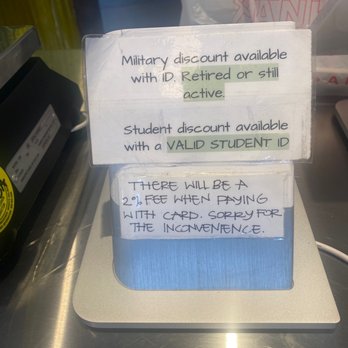 Military discount available
with ID. Retired or still
active.
Student discount available
with a VALID STUDENT ID
THERE WILL BE A
2% FEE WHEN PAYING
WITH CARD. SORRY FOR
THE INCONVENIENCE.